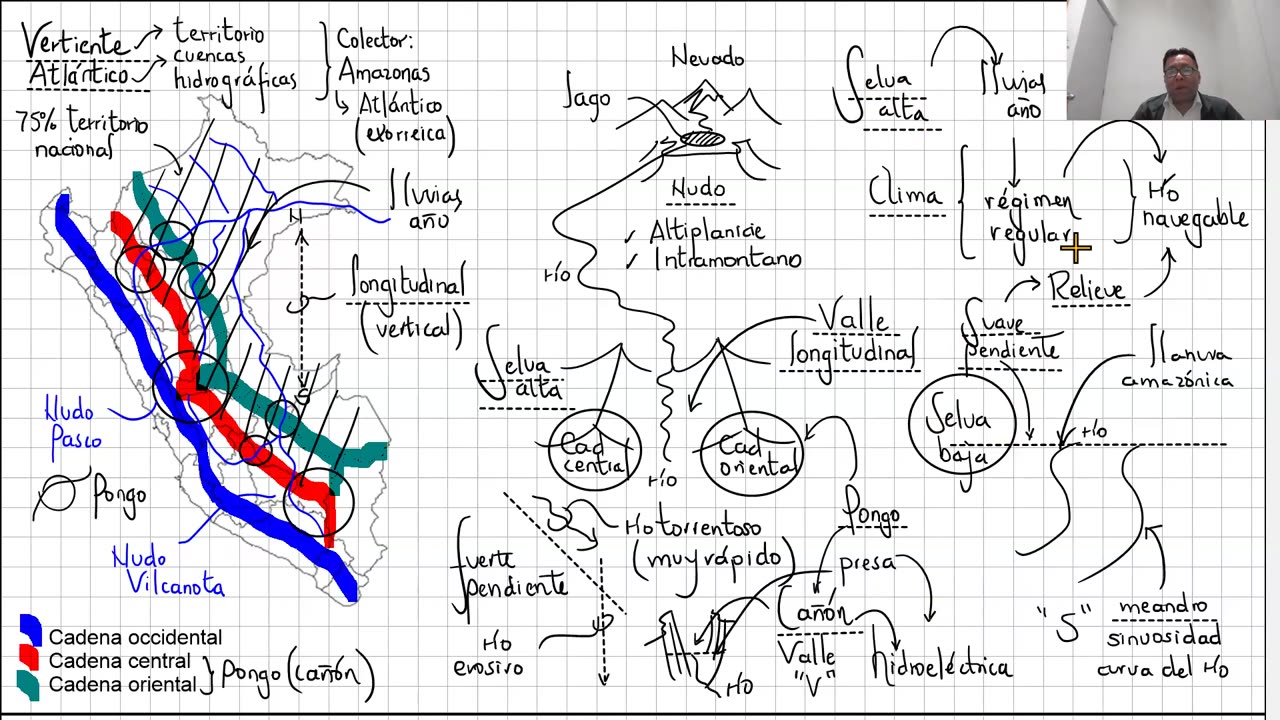 Vertiente
Atlántico
territorio
cuencas
hidrográficas
Colector:
Amazonas
↳ Atlántico
(exorreica)
75% territorio
nacional
lluvias
año
N
S
longitudinal
(vertical)
Nudo
Pasco
Pongo
Nudo
Vilcanota
Cadena occidental
Cadena central
Cadena oriental
Pongo (cañón)
Nevado
lago
Nudo
✓ Altiplanicie
✓ Intramontano
río
Valle
longitudinal
Selva
alta
Cad
central
Cad
oriental
río
río torrentoso
(muy rápido)
fuerte
pendiente
río
erosivo
Pongo
presa
Cañón
Valle
"V"
hidroeléctrica
río
Selva
alta
lluvias
año
Clima
régimen
regular
río
navegable
Relieve
Suave
pendiente
llanura
amazónica
Selva
baja
río
"S"
meandro
sinuosidad
curva del río